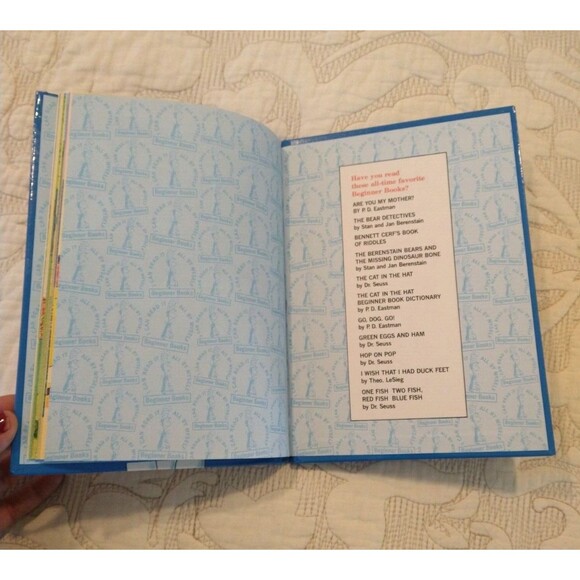 Have you read
these all-time favorite
Beginner Books?
ARE YOU MY MOTHER?
BY P. D. Eastman
THE BEAR DETECTIVES
by Stan and Jan Berenstain
BENNETT CERF'S BOOK
OF RIDDLES
THE BERENSTAIN BEARS AND
THE MISSING DINOSAUR BONE
by Stan and Jan Berenstain
THE CAT IN THE HAT
by Dr. Seuss
THE CAT IN THE HAT
BEGINNER BOOK DICTIONARY
by P. D. Eastman
GO, DOG. GO!
by P. D. Eastman
GREEN EGGS AND HAM
by Dr. Seuss
HOP ON POP
by Dr. Seuss
I WISH THAT I HAD DUCK FEET
by Theo. LeSieg
ONE FISH TWO FISH,
RED FISH BLUE FISH
by Dr. Seuss
Beginner Books